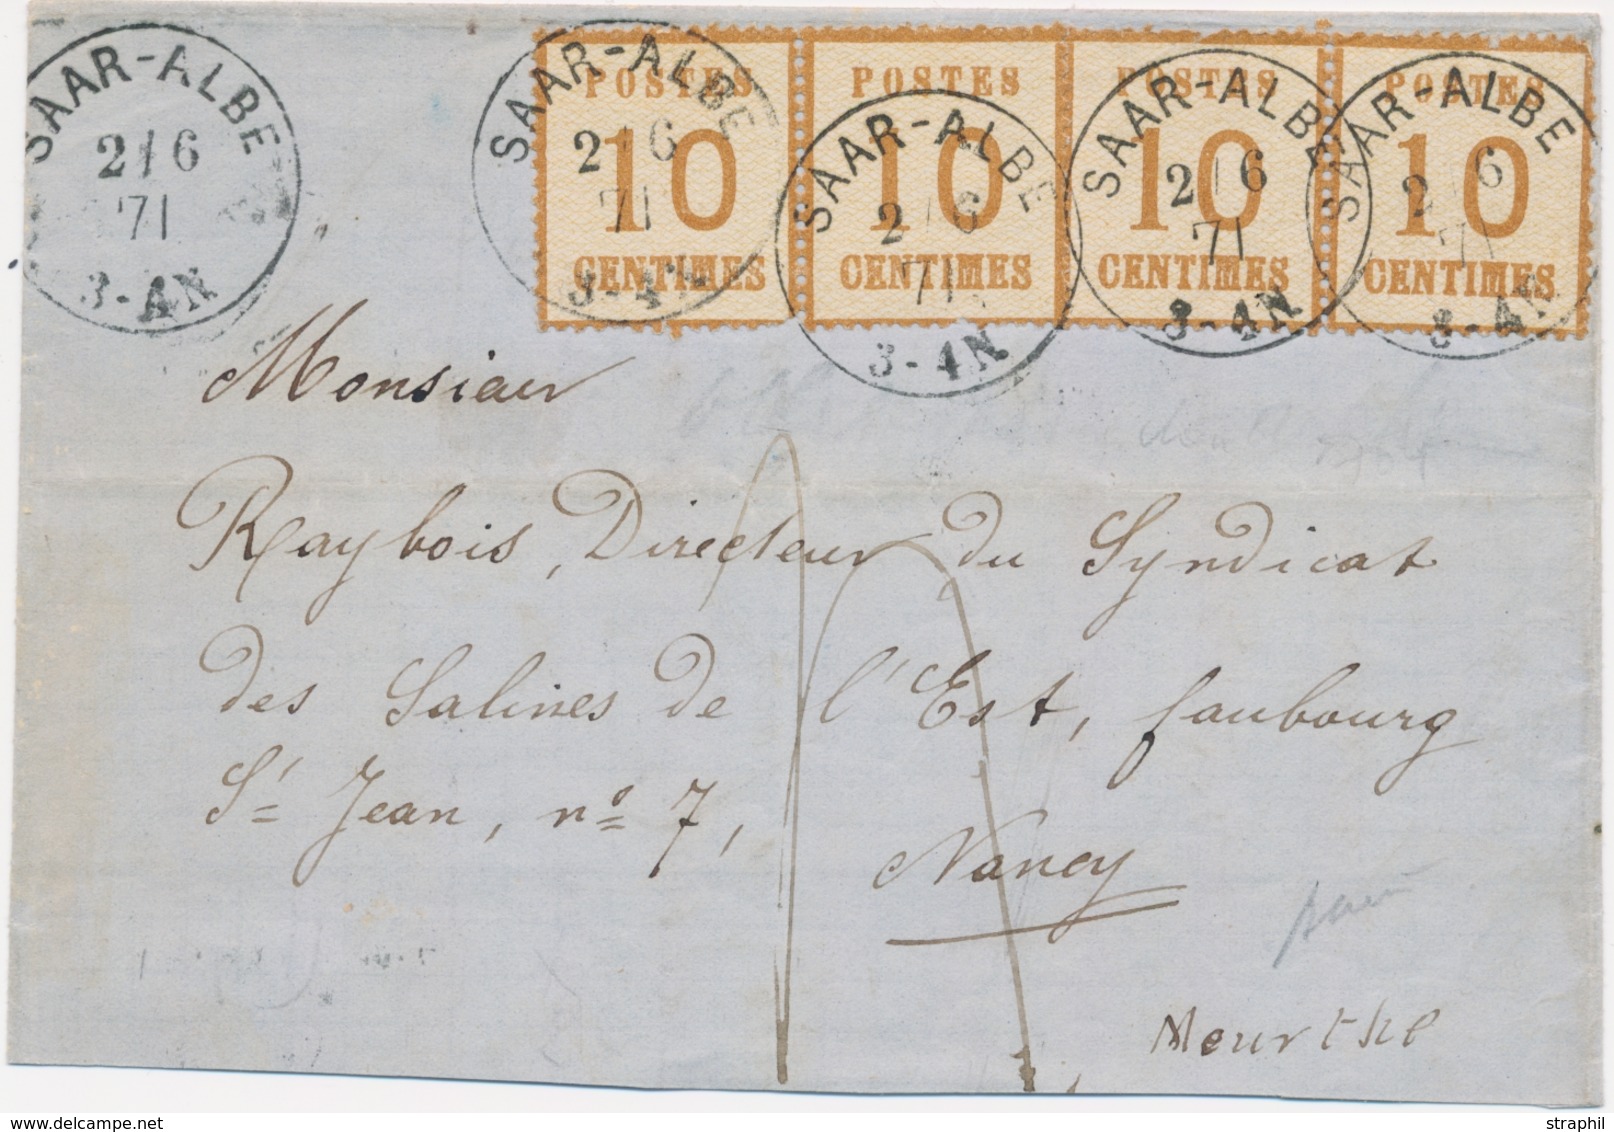 SAAR-ALBE
2/6
71
3-4N
SAAR-ALBE
2/6
71
3-4N
SAAR-ALBE
2/6
71
3-4N
SAAR-ALBE
2/6
71
3-4N
SAAR-ALBE
2/6
71
3-4N
POSTES
10
CENTIMES
POSTES
10
CENTIMES
POSTES
10
CENTIMES
POSTES
10
CENTIMES
Monsieur
Raybois, Directeur du Syndicat
des Salines de l'Est, faubourg
St Jean, no 7,
Nancy
Meurthe
© www.delcampe.net
straphil